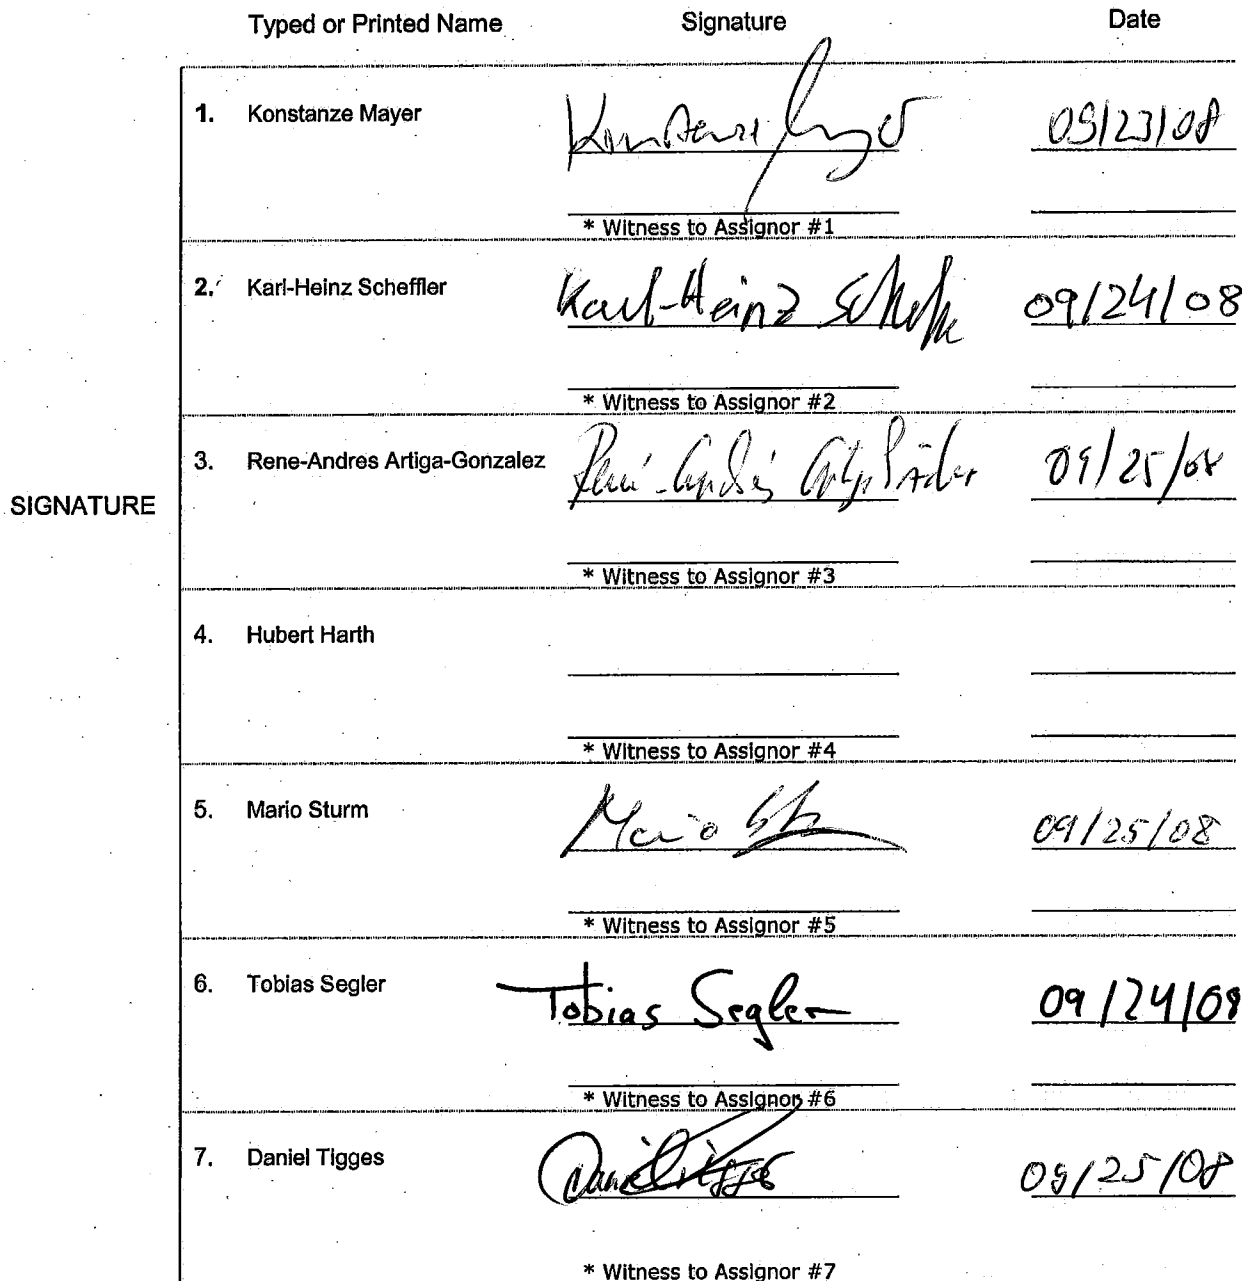 Typed or Printed Name Signature Date
1. Konstanze Mayer Konstanze Mayer 09/23/08
* Witness to Assignor #1
2. Karl-Heinz Scheffler Karl-Heinz Scheffler 09/24/08
* Witness to Assignor #2
3. Rene-Andres Artiga-Gonzalez René-Andrés Artiga 09/25/08
SIGNATURE
* Witness to Assignor #3
4. Hubert Harth
* Witness to Assignor #4
5. Mario Sturm Mario 09/25/08
* Witness to Assignor #5
6. Tobias Segler Tobias Segler 09/24/08
* Witness to Assignor #6
7. Daniel Tigges Daniel Tigges 09/25/08
* Witness to Assignor #7